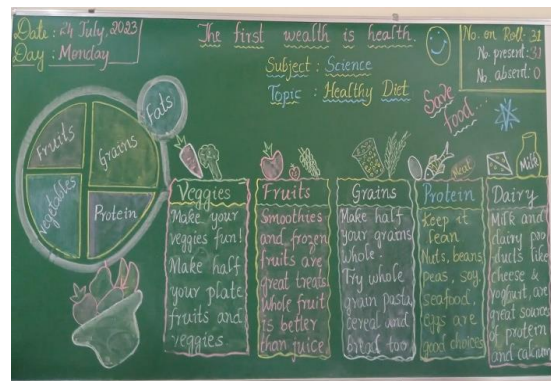 Date : 24 July, 2023
Day : Monday
The first wealth is health.
Subject : Science
Topic : Healthy Diet
No. on Roll: 31
No. present: 31
No. absent: 0
Save
food...
Fats
Fruits
Grains
Vegetables
Protein
Veggies
Make your
veggies fun!
Make half
your plate
fruits and
veggies
Fruits
Smoothies
and frozen
fruits are
great treats
Whole fruit
is better
than juice
Grains
Make half
your grains
whole.
Try whole
grain pasta,
cereal and
bread too
Meat
Protein
Keep it
lean
Nuts, beans,
peas, soy,
seafood,
eggs are
good choices
Milk
Dairy
Milk and
dairy pro
ducts like
cheese &
yoghurt, are
great source
of protein
and calcium